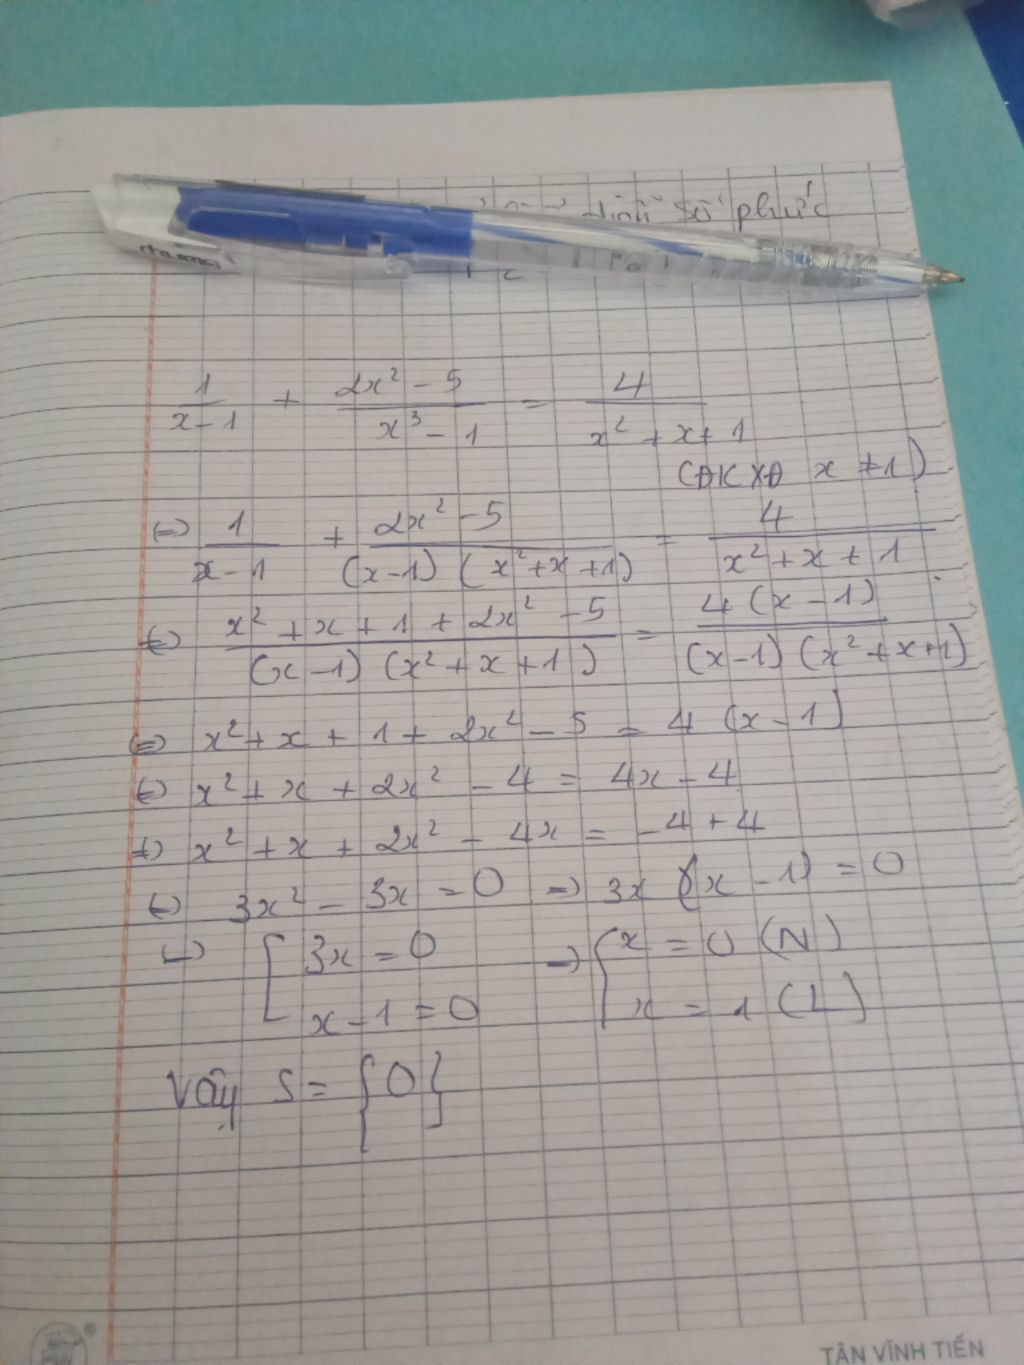 số phức
1/(x-1) + (2x² - 5)/(x³ - 1) = 4/(x² + x + 1)
(ĐKXĐ x ≠ 1)
(=) 1/(x-1) + (2x² - 5)/((x-1)(x² + x + 1)) = 4/(x² + x + 1)
(=) (x² + x + 1 + 2x² - 5)/((x-1)(x² + x + 1)) = 4(x-1)/((x-1)(x² + x + 1))
(=) x² + x + 1 + 2x² - 5 = 4(x-1)
(=) x² + x + 2x² - 4 = 4x - 4
(=) x² + x + 2x² - 4x = -4 + 4
(=) 3x² - 3x = 0 => 3x(x-1) = 0
=> [ 3x = 0 => { x = 0 (N)
x - 1 = 0 x = 1 (L)
Vậy S = {0}
TÂN VĨNH TIẾN